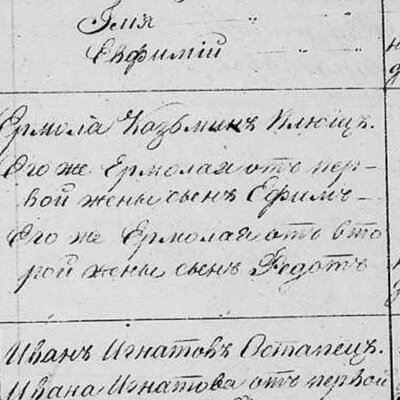 Имя " "
Евфимій " "
Ермола Козьминъ Клющъ.
Его же Ермолая отъ пер-
вой жены сынъ Ефимъ-
Его же Ермолая отъ вто
рой жены сынъ Федотъ
Иванъ Игнатовъ Остапецъ.
Ивана Игнатова отъ первой